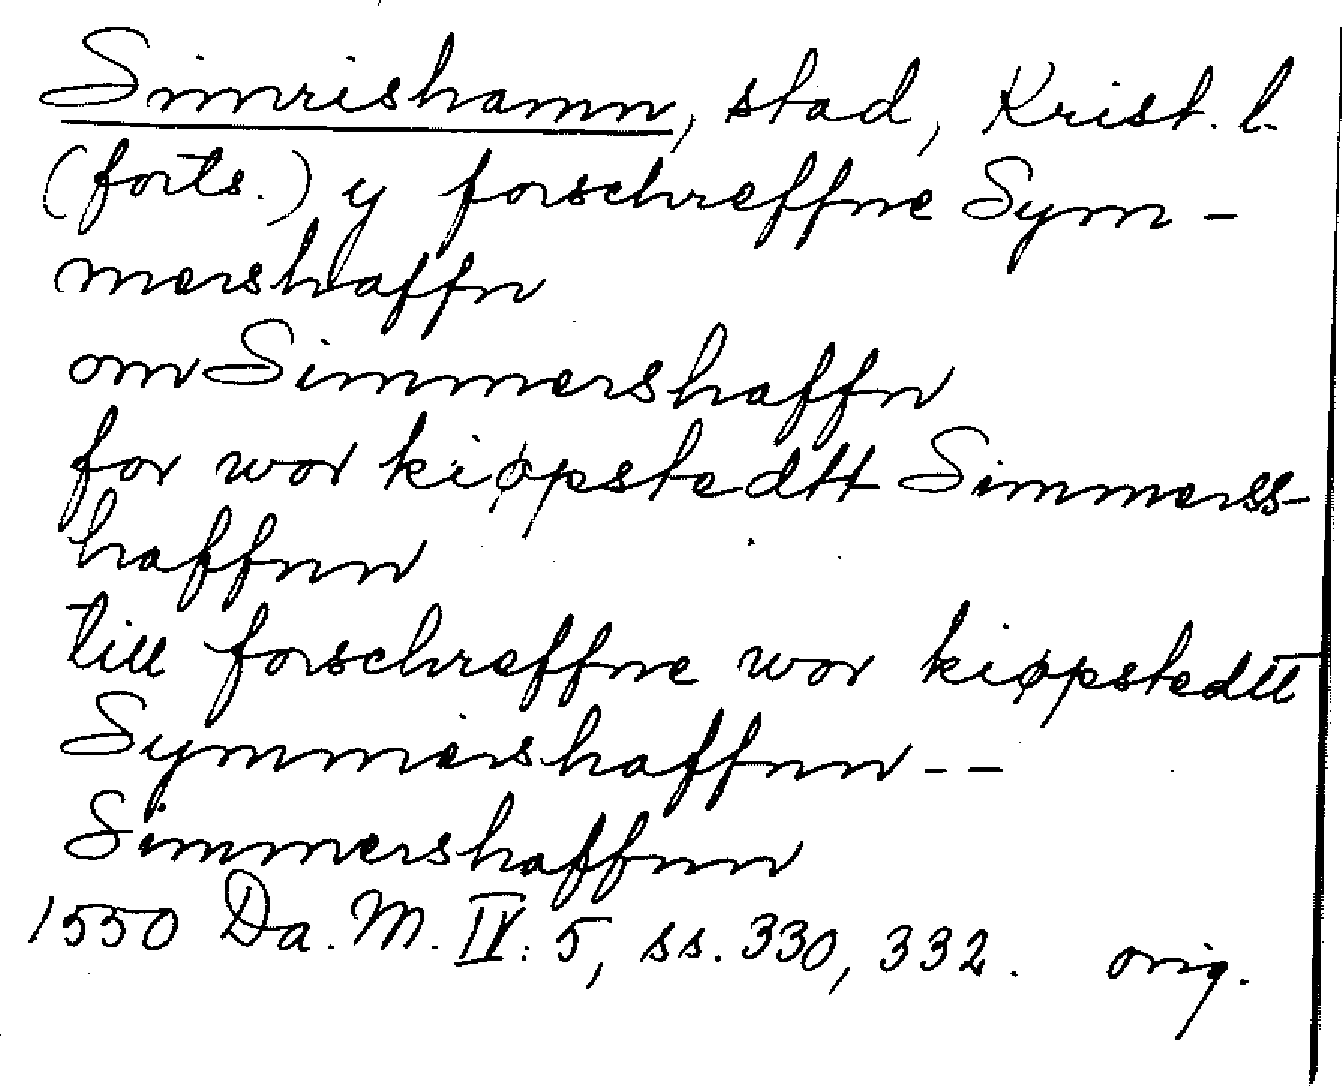 Simrishamn, stad, Krist. l.
(forts.) y forschreffne Sym-
mershaffn
om Simmershaffn
for wor kiøpstedtt Simmerss-
haffnn
till forschreffne wor kiøpstedtt
Symmershaffnn--
Simmershaffnn
1550 Da. M. IV: 5, ss. 330, 332. orig.